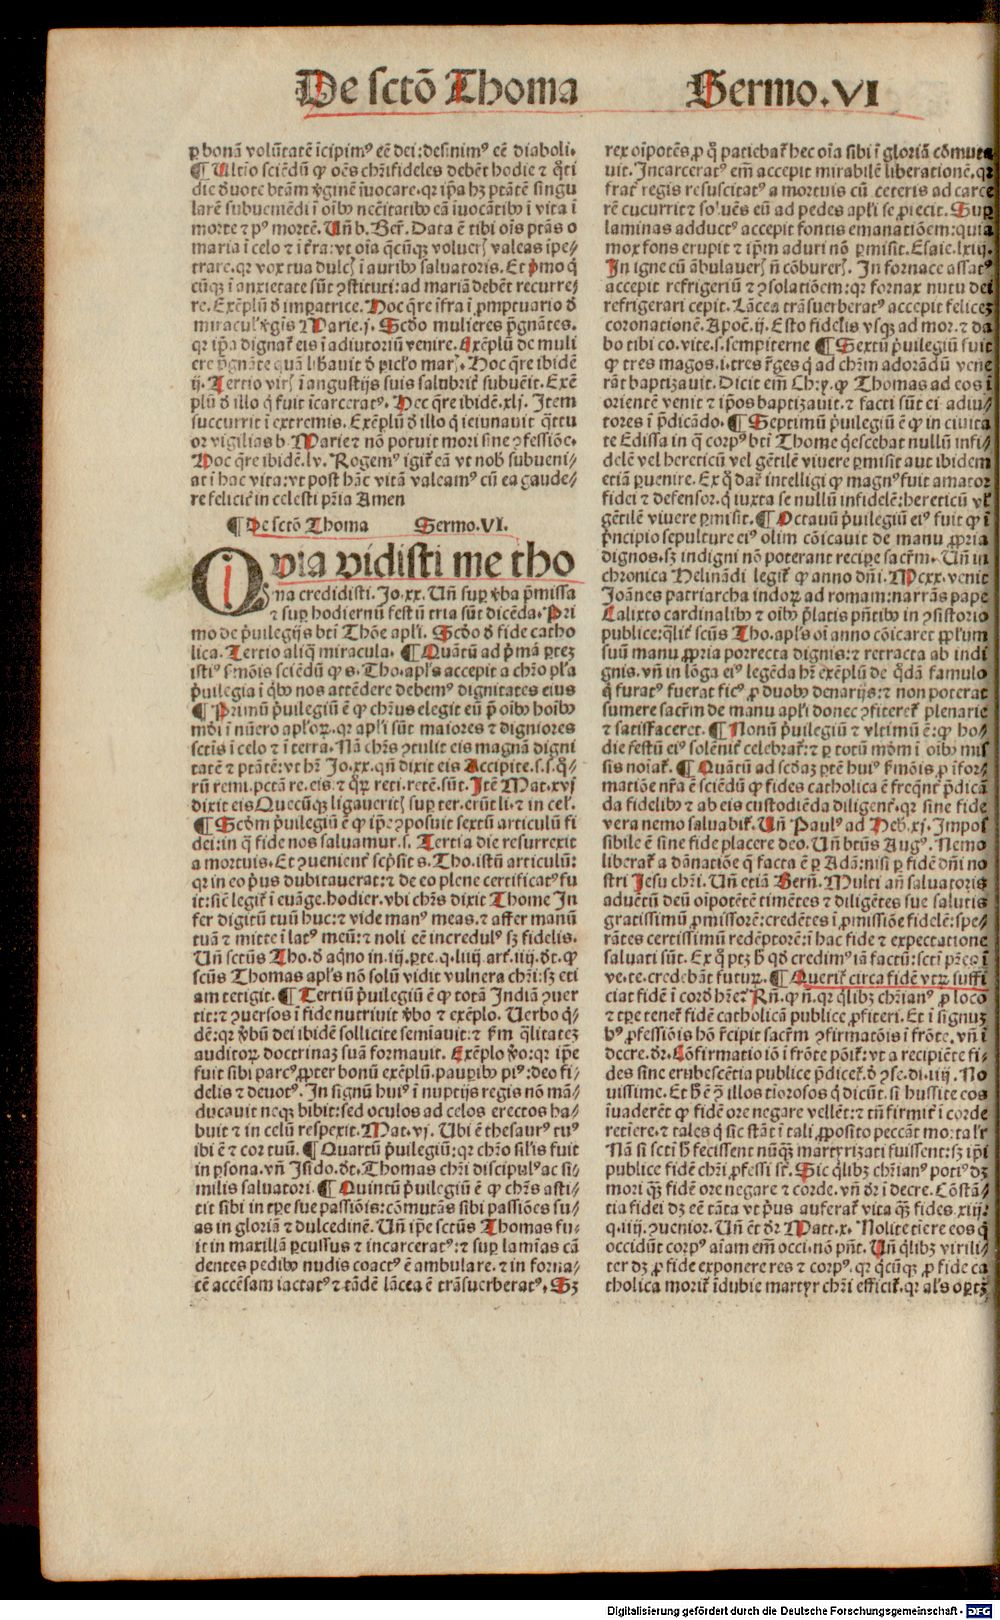 De sctō Thoma Sermo.VI
ꝑ bonā volūtatē īcipimꝰ eē dei: desinimꝰ eē diaboli.
¶ Ultīo sciēdū ꝙ oēs chr̄ifideles debēt hodie ⁊ q̄ti
die d̓uote btām v̓ginē īuocare.qꝛ ip̄a hꝫ ptātē singu
larē subueniēdi ī oībꝰ nccītatibꝰ eā īuocātibꝰ ī vita ī
morte ⁊ pꝰ mortē. Uñ b. Ber̄. Data ē tibi oīs ptās o
maria ī celo ⁊ ī t̄ra: vt oīa q̄cūqꝫ volueꝭ valeas īpe-
trare.qꝛ vox tua dulcꝭ ī auribꝰ saluatoris. Et p̓mo q̄
cūqꝫ ī anxietate sūt ꝯstituti: ad mariā debēt recurre-
re. Exēplū d̓ impatrice. Hoc q̄re īfra ī ꝓmptuario d̓
miracul̓ v̓gis Marie.j. Scd̓o mulieres p̄gnātes.
qꝛ ip̄a dignat̄ eis ī adiutoriū venire. Exēplū de muli
ere p̄gnāte quā libauit d̓ pic̄lo mar̄. Hoc q̄re ibidē
ij. Tertio virꝭ ī angustijs suis salubrit̄ subuēit. Exē
plū d̓ illo q̄ fuit īcarceratꝰ. Hec q̄re ibidē.xlj. Item
succurrit ī extremis. Exēplū d̓ illo q̄ ieiunauit q̄ttu
or vigilias b. Marie ⁊ nō potuit mori sine ꝯfessiōe.
Hoc q̄re ibidē.lv. Rogemꝰ igit̄ eā vt nob̄ subueni-
at ī hac vita: vt post hāc vitā valeamꝰ cū ea gaude-
re felicit̄ in celesti pr̄ia Amen
¶ De sctō Thoma Sermo.VI.
Qvia vidisti me tho
ma credidisti. Jo.xx. Uñ suꝑ v̓ba p̄missa
⁊ suꝑ hodiernū festū tria sūt dicēda. Pri
mo de p̓uilegijs bti̅ Thōe apl̓i. Scd̓o d̓ fide catho
lica. Tertio aliq̄ miracula. ¶ Quātū ad p̓mā ꝑtez
istiꝰ ẜmōis sciēdū ꝙ s. Tho.apl̓s accepit a chr̄o pl̓a
p̓uilegia ī q̄bꝰ nos attēdere debemꝰ dignitates eius
¶ Primū p̓uilegiū ē ꝙ chr̄us elegit eū p̄ oībꝰ hoībꝰ
mōi ī nūero apl̓oꝝ.qꝛ apl̓i sūt maiores ⁊ digniores
sctīs ī celo ⁊ ī terra. Nā chr̄s ꝯtulit eis magnā digni
tatē ⁊ ptātē: vt hr̄ Jo.xx. qñ dixit eis Accipite.s.s.q̄-
rū remi.pctā re.eis.⁊ q̄ꝝ reti.retē.sūt. Jtē Mat.xvj
dixit eis Quecūqꝫ ligaueritꝭ suꝑ ter.erūt li.⁊ in cel̓.
¶ Scd̓m p̓uilegiū ē ꝙ ip̄e ꝯposuit sextū articulū fi
dei: in q̄ fide nos saluamur.s. Tertia die resurrexit
a mortuis. Et ꝯuenient̄ scp̓sit s. Tho.istū articulū:
qꝛ in eo p̓us dubitauerat: ⁊ de eo plene certificatꝰ fu
it: siē legit̄ ī euāge.hodier.vbi chr̄s dixit Thome In
fer digitū tuū huc: ⁊ vide manꝰ meas.⁊ affer manū
tuā ⁊ mitte ī latꝰ meū: ⁊ noli eē incredulꝰ sꝫ fidelis.
Uñ sctūs Tho.d̓ aq̄no in.iij.ꝑte.q.liiij art̄.iiij.d̓t. ꝙ
scūs Thomas apl̓s nō solū vidit vulnera chr̄i: sꝫ eti
am tetigit. ¶ Tertiū p̓uilegiū ē ꝙ totā Indiā ꝯuer
tit: ⁊ ꝯuersos ī fide nutriuit v̓bo ⁊ exēplo. Uerbo q̓-
dē: qꝛ v̓bū dei ibidē sollicite semīauit: ⁊ ẜm q̄litatez
auditoꝝ doctrinaz suā formauit. Exēplo v̓o: qꝛ ip̄e
fuit sibi parcꝰ, ꝓpter bonū exēplū.pauꝑibꝰ piꝰ: deo fi-
delis ⁊ deuotꝰ. In signū huiꝰ ī nuptijs regis nō mā-
ducauit neqꝫ bibit: sed oculos ad celos erectos ha-
buit ⁊ in celū respexit. Mat.vj. Ubi ē thesaurꝰ tuꝰ
ibi ē ⁊ cor tuū. ¶ Quartū p̓uilegiū: qꝛ chr̄o sil̓is fuit
in ꝑsona.vñ Jsido.d̓t. Thomas chr̄i discipulꝰ ac si-
milis saluatori. ¶ Quintū p̓uilegiū ē ꝙ chr̄s asti-
tit sibi in tꝑe sue passiōis: cōmutās sibi passiōes su-
as in gloriā ⁊ dulcedinē. Uñ ip̄e sctūs Thomas fu-
it in maxillā ꝑcussus ⁊ incarceratꝰ: ⁊ suꝑ lamīas cā
dentes pedibꝰ nudis coactꝰ ē ambulare.⁊ in forna-
cē accēsam iactatꝰ ⁊ tādē lācea ē trāsuerberatꝰ. Sꝫ
rex oīpotēs, ꝓ q̄ patiebat̄ hec oīa sibi ī gloriā cōmuta
uit. Jncarceratꝰ em̄ accepit mirabilē liberationē.qꝛ
frat̄ regis resuscitatꝰ a mortuis cū ceteris ad carce
rē cucurrit ⁊ soluēs eū ad pedes apl̓i se ꝓiecit. Suꝑ
laminas adductꝰ accepit fontis emanatiōem: quia
mox fons erupit ⁊ ip̄m aduri nō ꝑmisit. Esaie.lxiij.
Jn igne cū ābulaueꝭ n̄ cōbureꝭ. Jn fornace assatꝰ
accepit refrigeriū ⁊ ꝯsolatiōem: qꝛ fornax nutu dei
refrigerari cepit. Lācea trāsuerberatꝰ accepit felicez
coronationē. Apoc̄.ij. Esto fidelis vsqꝫ ad mor.⁊ da
bo tibi co.vite.s.sempiterne ¶ Sextū p̓uilegiū fuit
ꝙ tres magos.i.tres r̄ges q̄ ad chr̄m adorādū vene
rāt baptizauit. Dicit em̄ Chꝛy. ꝙ Thomas ad eos ī
orientē venit ⁊ ip̄os baptizauit.⁊ facti sūt ei adiu-
tores ī p̄dicādo. ¶ Septimū p̓uilegiū ē ꝙ in ciuita
te Edissa in q̄ corpꝰ bti̅ Thome q̓escebat nullū infi-
delē vel hereticū vel gētilē viuere ꝑmisit aut ibidem
etiā ꝑuenire. Ex q̄ dat̄ intelligi ꝙ magnꝰ fuit amator
fidei ⁊ defensor.q̄ iuxta se nullū infidelē: hereticū vl̓
gētilē viuere ꝑmisit. ¶ Octauū p̓uilegiū eiꝰ fuit ꝙ ī
p̓ncipio sepulture eiꝰ olim cōicauit de manu ꝓpria
dignos.sꝫ indigni nō poterant recipe sacr̄m. Uñ in
chronica Helinādi legit̄ ꝙ anno dñi.Mcxx.venit
Joānes patriarcha indoꝝ ad romam: narrās pape
Calixto cardinalibꝰ ⁊ oībꝰ p̄latis pñtibꝰ in ꝯsistorio
publice: q̄lit̄ scūs Tho.apl̓s oī anno cōicaret ꝓpl̓um
suū manu ꝓpria porrecta dignis: ⁊ retracta ab indi
gnis.vñ in lōga eiꝰ legēda hr̄ exēplū de q̄dā famulo
q̄ furatꝰ fuerat ficꝰ ꝓ duobꝰ denarijs: ⁊ non poterat
sumere sacr̄m de manu apl̓i donec ꝯfiteret̄ plenarie
⁊ satisfaceret. ¶ Nonū p̓uilegiū ⁊ vltimū ē: ꝙ ho-
die festū eiꝰ solēnit̄ celebrat̄: ⁊ ꝑ totū mōm ī oībꝰ mis
sis noīat̄. ¶ Quātū ad scd̓aꝫ ꝑtē huiꝰ ẜmōis ꝓ īfor-
matiōe nr̄a ē sciēdū ꝙ fides catholica ē freq̄nt̄ p̄dicā
da fidelibꝰ ⁊ ab eis custodiēda diligent̄.qꝛ sine fide
vera nemo saluabit̄. Uñ Paulꝰ ad Heb̄.xj. Impos
sibile ē sine fide placere deo. Uñ btūs Augꝰ. Nemo
liberat̄ a dānatiōe q̄ facta ē ꝑ Adā: nisi ꝑ fidē dñi no
stri Jesu chr̄i. Uñ etiā Berñ. Multi añ saluatoris
aduētū deū oīpotētē timētes ⁊ diligētes sue salutis
gratissimū ꝓmissorē: credētes ī ꝓmissiōe fidelē: spe-
rātes certissimū redēptorē: ī hac fide ⁊ expectatione
saluati sūt. Ex q̄ ptꝫ ꝙ q̓d credimꝰ iā factū: scti̅ pr̄es ī
ve.te.credebāt futuꝝ. ¶ Querit̄ circa fidē vtꝝ suffi
ciat fidē ī corde hr̄e? Rñ. ꝙ n̄.qꝛ q̄libꝫ chr̄ianꝰ ꝓ loco
⁊ tꝑe tenet̄ fidē catholicā publice ꝓfiteri. Et ī signuꝫ
hꝰ ꝓfessiōis hō r̄cipit sacr̄m ꝯfirmatōis ī frōte.vñ ī
decre.dr̄. Cōfirmatio iō ī frōte pōit̄: vt a recipiēte fi-
des sine erubescētia publice p̄dicet̄.d̓ ꝯse.di.iiij. No
uissime. Et h̓ ē ꝯ illos tiorosos q̄ dicūt.si hussite eos
īuaderēt ꝙ fidē ore negare vellēt: ⁊ tñ firmit̄ ī corde
retīere.⁊ tales q̄ sic stāt ī tali ꝓposito peccāt mo: tal̓r
Nā si scti̅ h̓ fecissent nūq̄ꝫ martyrizati fuissent: sꝫ ip̄i
publice fidē chr̄i ꝓfessi st̄. Sic q̄libꝫ chr̄ianꝰ potiꝰ dꝫ
mori q̄ꝫ fidē ore negare ⁊ corde.vñ dr̄ ī decre. Cōstā-
tia fidei dꝫ eē tāta vt p̓us auferat̄ vita q̄ꝫ fides.xiij:
q.iiij.ꝯuenior. Uñ ēt dr̄ Matt.x. Nolite tīere eos q̄
occidūt corpꝰ aīam em̄ occi.nō pñt. Uñ q̄libꝫ virili-
ter dꝫ ꝓ fide exponere res ⁊ corpꝰ.qꝛ q̄cūqꝫ ꝓ fide ca
tholica morit̄ īdubie martyr chr̄i efficit̄.qꝛ al̓s oꝑtꝫ
Digitalisierung gefördert durch die Deutsche Forschungsgemeinschaft - DFG